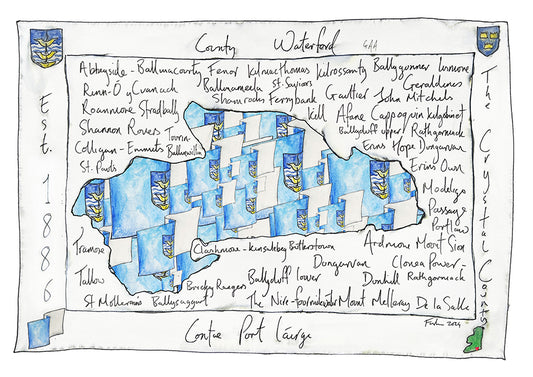 County Waterford GAA
Abbeyside - Ballinacourty Fenor Kilmacthomas Kilrossanty Ballygunner Lismore
Rinn-Ó gCuanach Ballinameela St. Saviors Geraldines
Shamrocks Ferrybank Gaultier John Mitchels
Roanmore Stradbally Kill Affane Cappoquin Kilgobinet
Shannon Rovers Tourin Ballyduff upper Rathgormack
Colligan - Emmets Erins Hope Dungarvan
St. Pauls Erins Own
Modeligo
Passage
Portlaw
Tramore Clashmore - Kinsalebeg Butlerstown Ardmore Mount Sion
Dungarvan Clonea Power -
Tallow Brickey Rangers Ballyduff lower Dunhill Rathgormack
St Mollerans Ballysaggart The Nire - Fourmilewater Mount Mellaray De la Salle
Contae Port Láirge
Est. 1886
The Crystal County